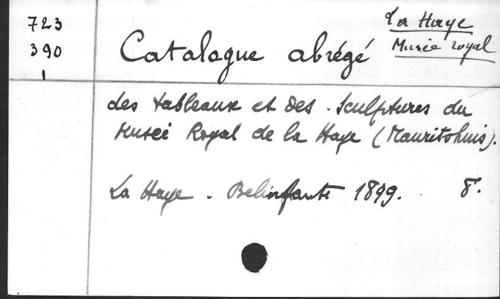 723
390
1
La Haye
Musée royal
Catalogue abrégé
des tableaux et des sculptures du
Musée Royal de la Haye (Mauritshuis).
La Haye. Belinfante 1899. 8°.